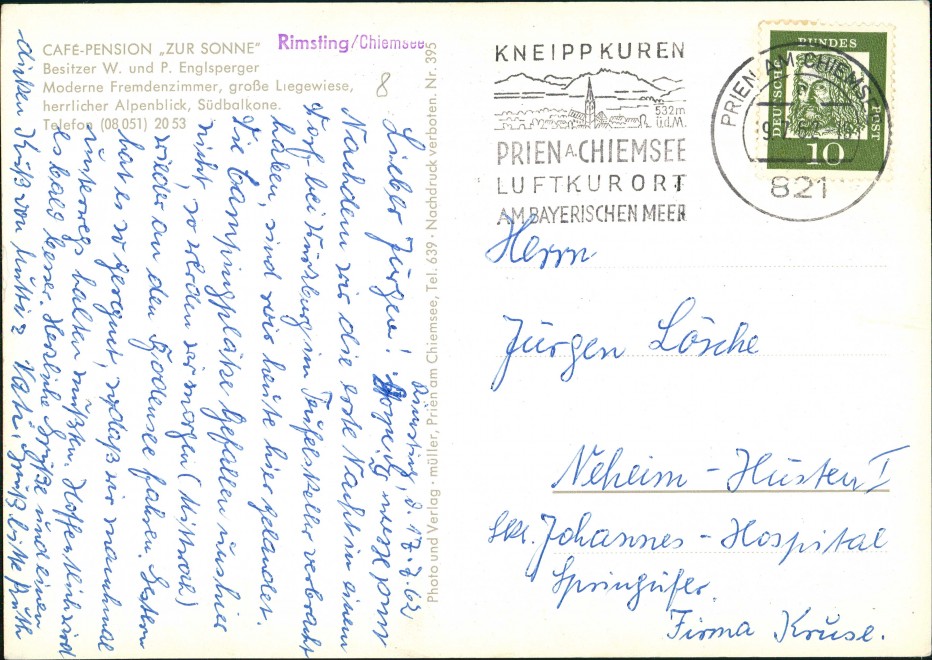 CAFÉ-PENSION „ZUR SONNE"
Besitzer W. und P. Englsperger
Moderne Fremdenzimmer, große Liegewiese,
herrlicher Alpenblick, Südbalkone.
Telefon (08 051) 20 53
Rimsting/Chiemsee
8
Rimsting, d. 17.7.62
Lieber Jürgen!
Nachdem wir die erste Nacht in einem
Dorf bei Würzburg im Teufelskeller verbracht
haben, sind wir heute hier gelandet.
Die Campingplätze gefallen uns hier
nicht, so werden wir morgen (Mittwoch)
wieder an den Bodensee fahren. Gestern
hat es so geregnet, sodaß wir manchmal
unterwegs halten mußten. Hoffentlich wird
es bald besser. Herzliche Grüße und einen
dicken Kuß von Mutti & Vati. Grüß bitte Ruth
Photo und Verlag · müller, Prien am Chiemsee, Tel. 639 · Nachdruck verboten. Nr. 395
KNEIPPKUREN
532m
ü.d.M.
PRIEN A. CHIEMSEE
LUFTKURORT
AM BAYERISCHEN MEER
PRIEN AM CHIEMSEE
821
DEUTSCHE BUNDESPOST
10
Herrn
Jürgen Lösche
Neheim-Hüsten I
Johannes-Hospital
Springufer
Firma Kruse.